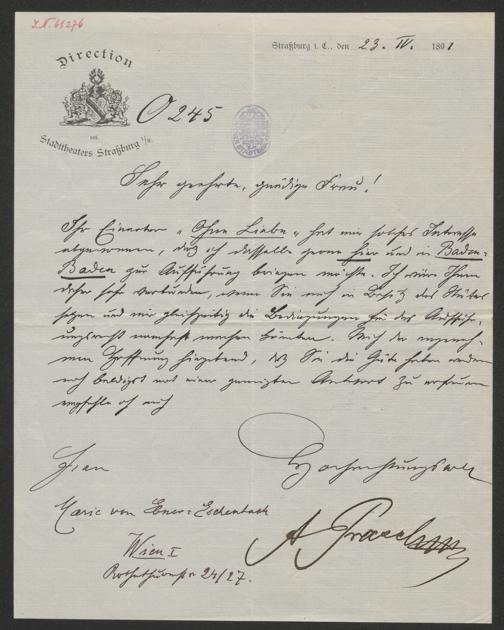 I.N. 61276
Direction
des
Stadttheaters Straßburg i/E.
O 245
Straßburg i. E., den 23. IV. 1891
Sehr geehrte, gnädige Frau!
Ihr Einacter „Ohne Liebe“ hat mir solches Interesse
abgewonnen, daß ich dasselbe gerne hier und in Baden-
Baden zur Aufführung bringen möchte. Ich wäre Ihnen
daher sehr verbunden, wenn Sie mich in Besitz des Stückes
setzen und mir gleichzeitig die Bedingungen für das Aufführ-
ungsrecht namhaft machen könnten. Mich der angeneh-
men Hoffnung hingebend, daß Sie die Güte haben werden
mich baldigst mit einer geneigten Antwort zu erfreuen
empfehle ich mich
Hochachtungsvoll
Frau
Marie von Ebner-Eschenbach
Wien I
Rothethurmstr 24/27.
A. Prasch